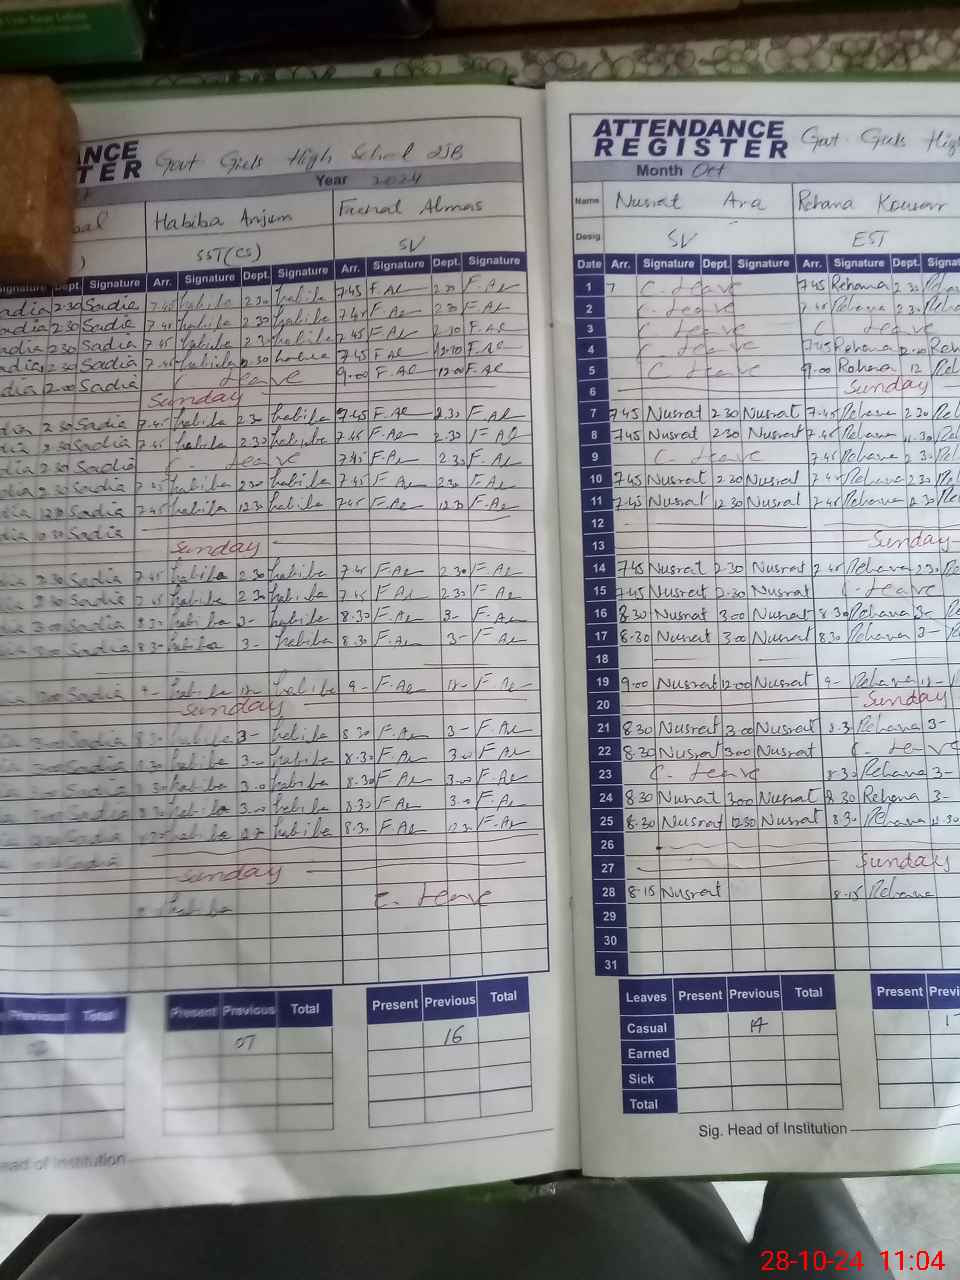 NCE Govt Girls High School 2SB
TER
Year 2024
Habiba Anjum Faenal Almas
SST(CS) SV
Signature Dept. Signature Arr. Signature Dept. Signature Arr. Signature Dept. Signature
2.30 Sadia 7.45 habiba 2.30 habiba 7.45 F.Al 2.30 F.Al
2.30 Sadia 7.45 habiba 2.30 habiba 7.45 F.Al 2.30 F.Al
2.30 Sadia 7.45 habiba 2.30 habiba 7.45 F.Al 2.30 F.Al
2.30 Sadia 7.45 habiba 7.45 F.Al 12.30 F.Al
Sadia C. Leave 9.00 F.Al 12.00 F.Al
Sunday
2.30 Sadia 7.45 habiba 2.30 habiba 7.45 F.Al 2.30 F.Al
2.30 Sadia 7.45 habiba 2.30 habiba 7.45 F.Al 2.30 F.Al
2.30 Sadia C. Leave 7.45 F.Al 2.30 F.Al
2.30 Sadia 7.45 habiba 2.30 habiba 7.45 F.Al 2.30 F.Al
12.30 Sadia 7.45 habiba 12.30 habiba 7.45 F.Al 12.30 F.Al
Sadia
Sunday
2.30 Sadia 7.45 habiba 2.30 habiba 7.45 F.Al 2.30 F.Al
2.30 Sadia 7.45 habiba 2.30 habiba 7.45 F.Al 2.30 F.Al
3.00 Sadia 8.30 habiba 3- habiba 8.30 F.Al 3- F.Al
3.00 Sadia 8.30 habiba 3- habiba 8.30 F.Al 3- F.Al
Sadia 9- habiba 12- habiba 9- F.Al 12- F.Al
Sunday
3.00 Sadia 8.30 habiba 3- habiba 8.30 F.Al 3- F.Al
Sadia 8.30 habiba 3- habiba 8.30 F.Al 3.00 F.Al
Sadia 8.30 habiba 3.00 habiba 8.30 F.Al 3.00 F.Al
Sadia 8.30 habiba 3.00 habiba 8.30 F.Al 3.00 F.Al
Sadia habiba habiba 8.30 F.Al 12.30 F.Al
Sadia
Sunday
Habiba C. Leave
Previous Total Present Previous Total Present Previous Total
07 16
Head of Institution
ATTENDANCE Govt. Girls Hig
REGISTER
Month Oct
Name Nusrat Ara Rehana Kousar
Desig. SV EST
Date Arr. Signature Dept. Signature Arr. Signature Dept. Signat
1 7 C. Leave 7.45 Rehana 2.30
2 C. Leave 7.45 Rehana 2.30
3 C. Leave C. Leave
4 C. Leave 7.45 Rehana Reh
5 C. Leave 9.00 Rehana 12
6 Sunday
7 7.45 Nusrat 2.30 Nusrat 7.45 Rehana 2.30
8 7.45 Nusrat 2.30 Nusrat 7.45 Rehana 2.30
9 C. Leave 7.45 Rehana 2.30
10 7.45 Nusrat 2.30 Nusrat 7.45 Rehana 2.30
11 7.45 Nusrat 12.30 Nusrat 7.45 Rehana 12.30
12
13 Sunday
14 7.45 Nusrat 2.30 Nusrat 7.45 Rehana 2.30
15 7.45 Nusrat 2.30 Nusrat C. Leave
16 8.30 Nusrat 3.00 Nusrat 8.30 Rehana 3-
17 8.30 Nusrat 3.00 Nusrat 8.30 Rehana 3-
18
19 9.00 Nusrat 12.00 Nusrat 9- Rehana 12-
20 Sunday
21 8.30 Nusrat 3.00 Nusrat 8.30 Rehana 3-
22 8.30 Nusrat 3.00 Nusrat C. Leave
23 C. Leave 8.30 Rehana 3-
24 8.30 Nusrat 3.00 Nusrat 8.30 Rehana 3-
25 8.30 Nusrat 12.30 Nusrat 8.30 Rehana 12.30
26
27 Sunday
28 8.15 Nusrat 8.15 Rehana
29
30
31
Leaves Present Previous Total Present Previ
Casual 14
Earned
Sick
Total
Sig. Head of Institution
28-10-24 11:04